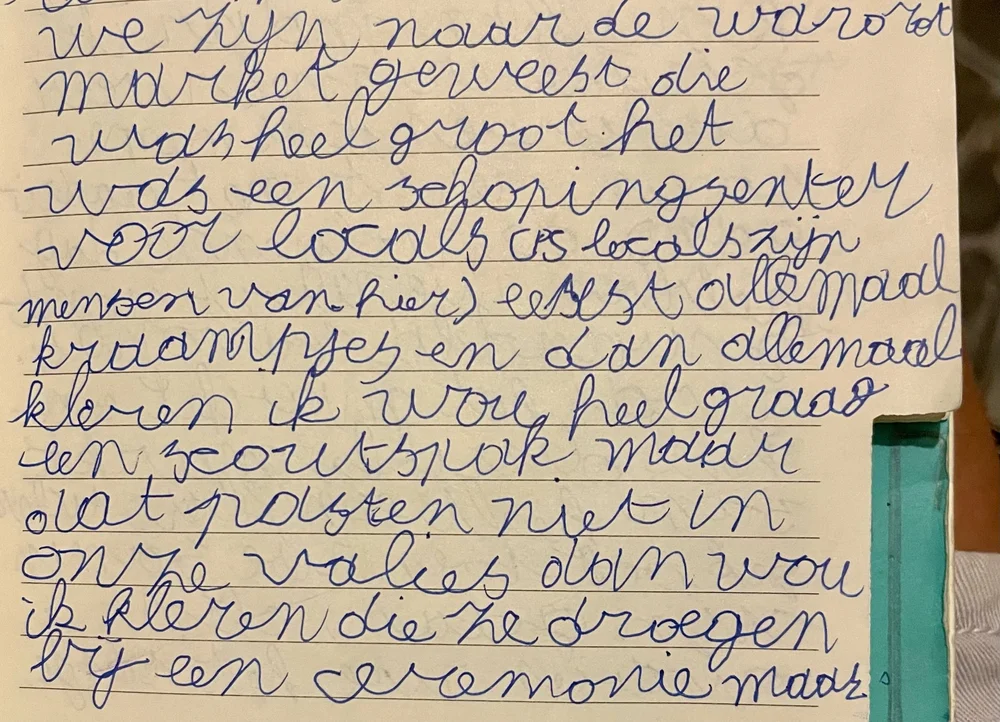 we zijn naar de warorot
market geweest die
was heel groot. het
was een schopingsenter
voor locals (ps locals zijn
mensen van hier) eerst allemaal
kraampjes en dan allemaal
kleren ik wou heel graag
een scoutspak maar
dat pasten niet in
onze valies dan wou
ik kleren die ze droegen
bij een ceremonie maar